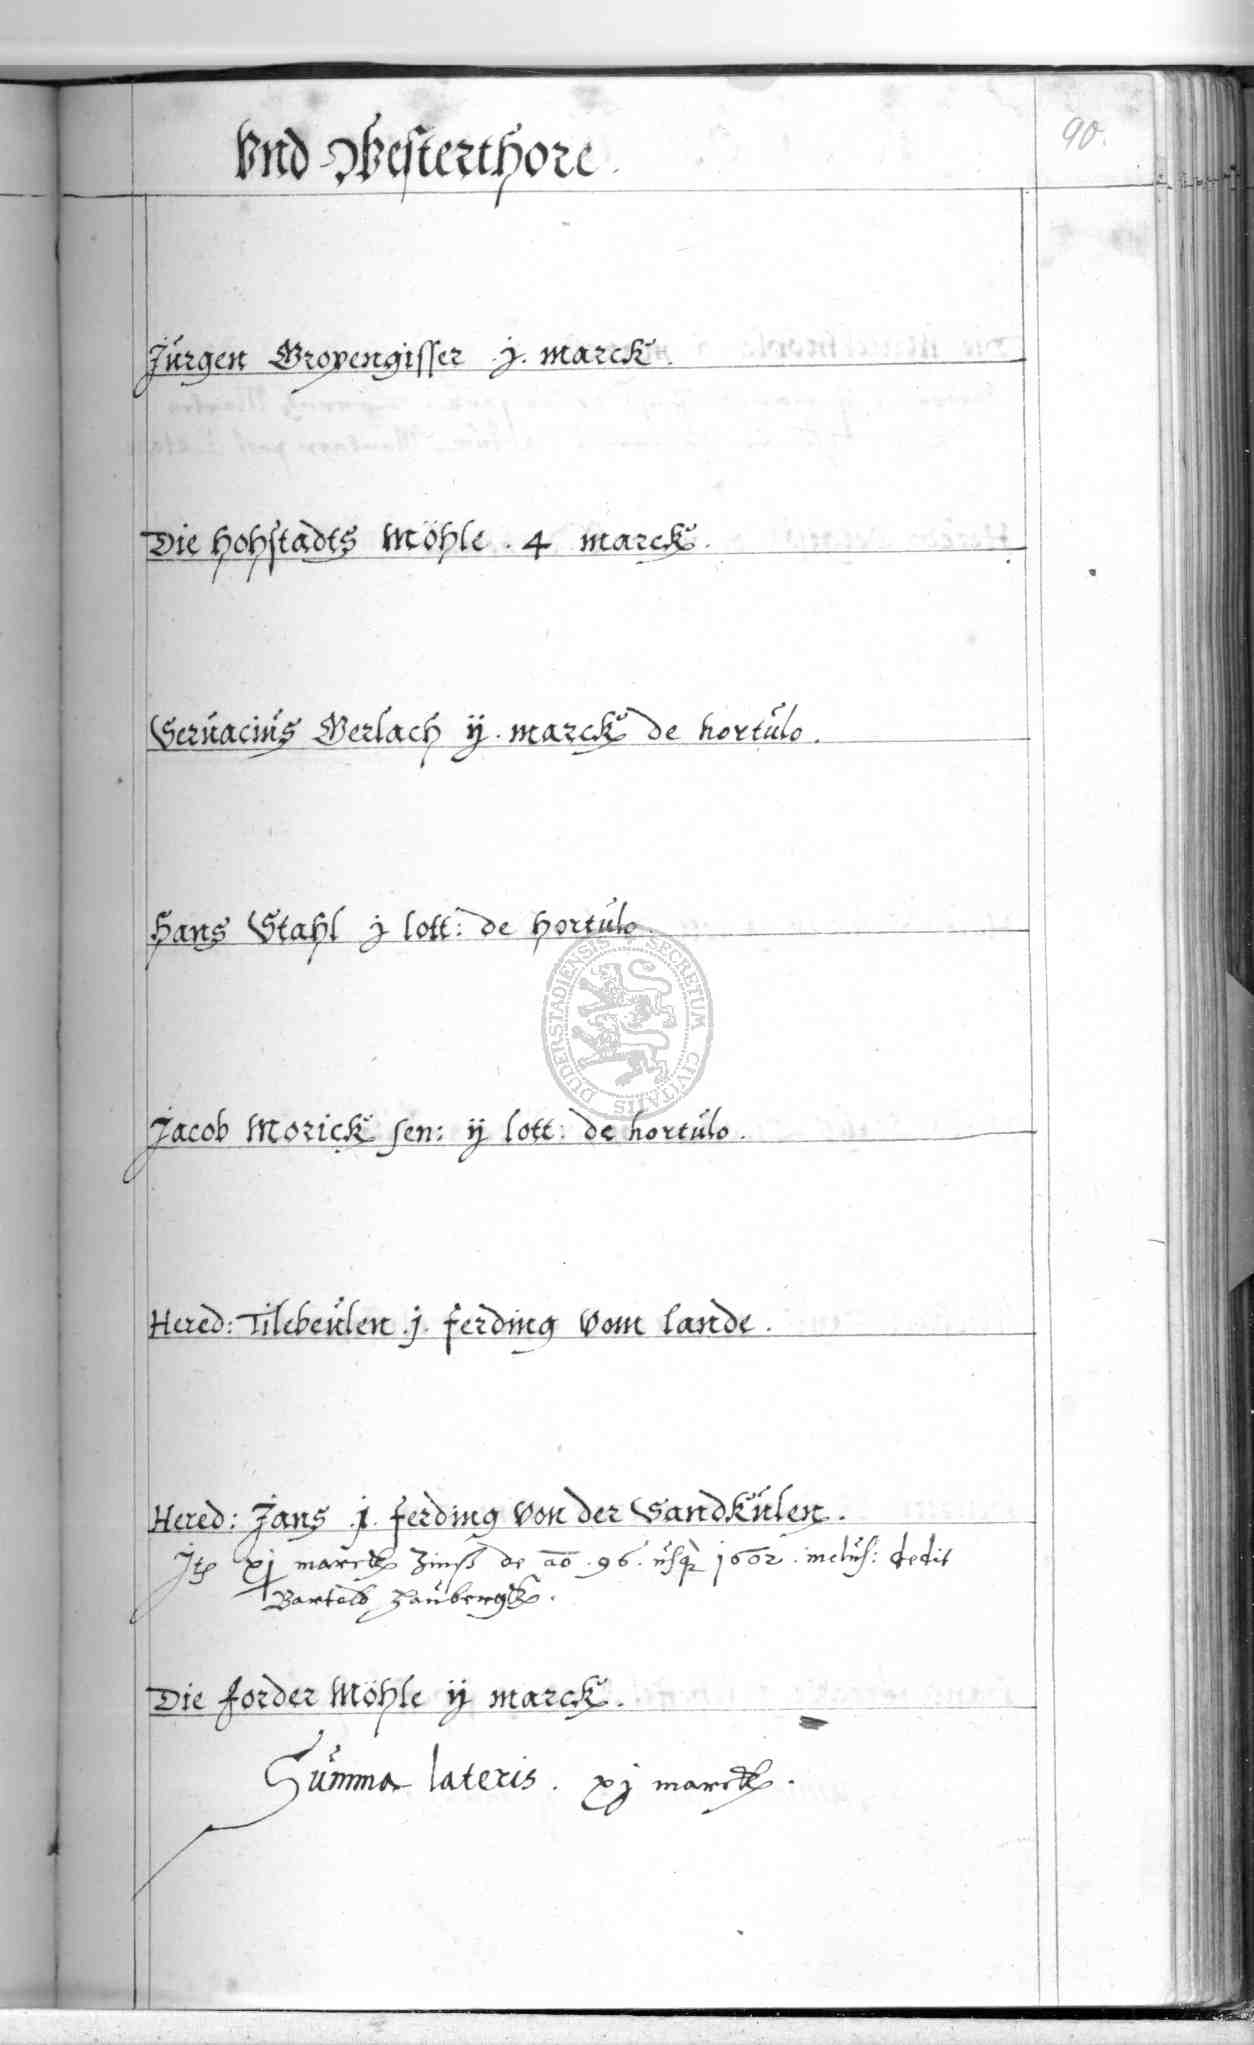 90.
Vnd Westerthore.
Jürgen Gropengisser .j. marck.
Die Hohstadts Möhle . 4 marck.
Seruacius Gerlach ij. marck de hortulo.
Hans Stahl j lott: de hortulo.
SECRETUM CIVITATIS DUDERSTADIENSIS
Jacob Morick sen: ij lott: de hortulo.
Hered: Tilebeulen .j. ferding vom lande.
Hered: Jans .j. ferding von der Sandkulen.
Jtē xj marck Zinß de ao .96. usq 1602 . inclus: dedit
Barteld
Die forder Möhle ij marck.
Summa lateris. xj marck.